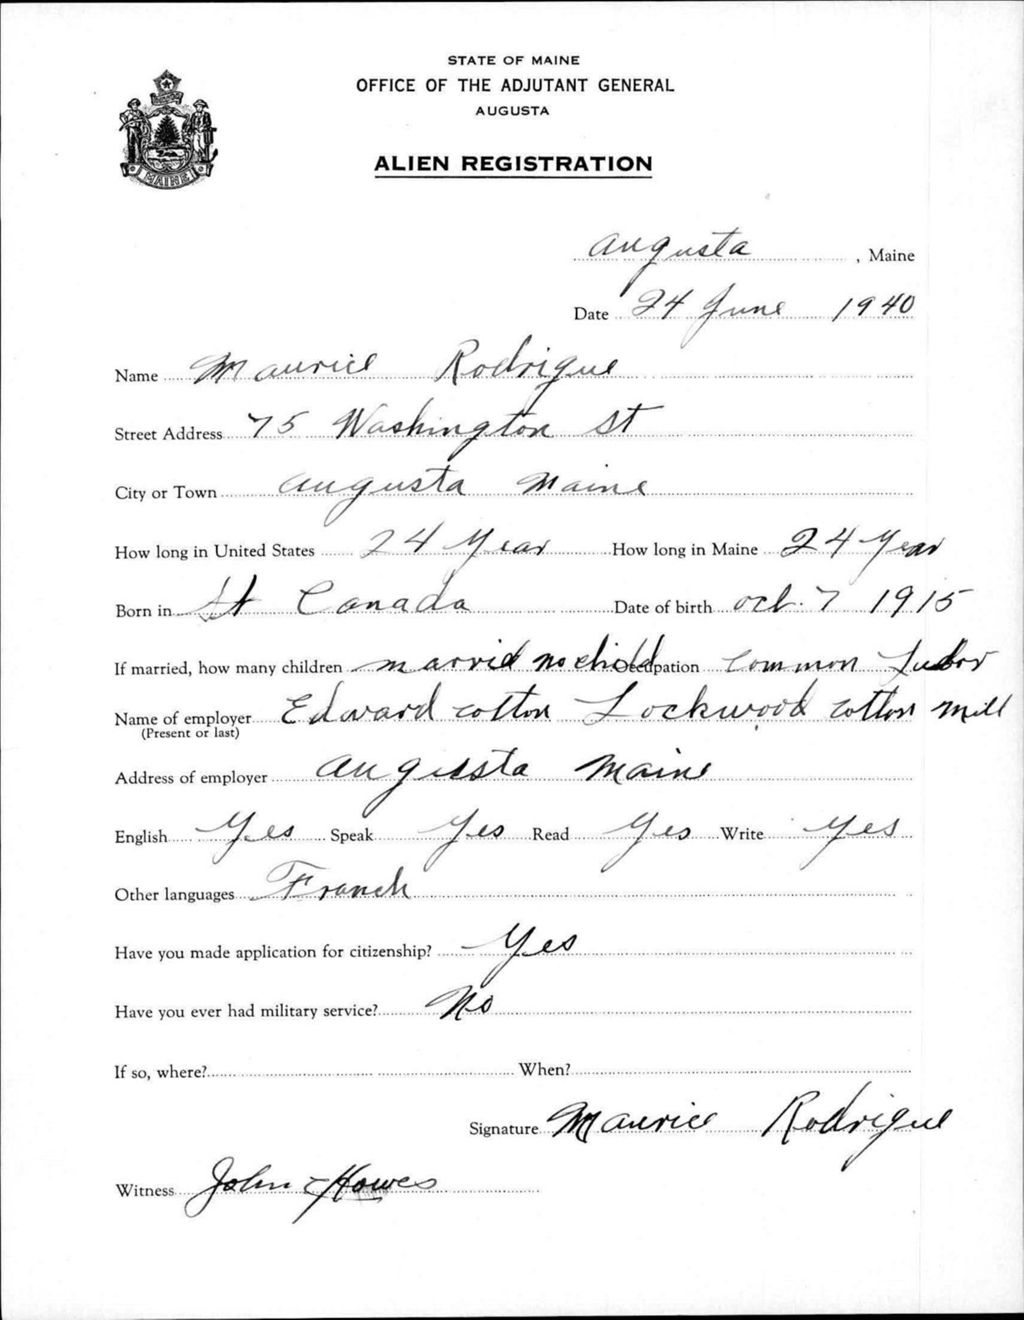 STATE OF MAINE
OFFICE OF THE ADJUTANT GENERAL
AUGUSTA
ALIEN REGISTRATION
MAINE
Augusta, Maine
Date 24 June 1940
Name Maurice Rodrigue
Street Address 75 Washington St
City or Town Augusta Maine
How long in United States 24 Year How long in Maine 24 Year
Born in St Canada Date of birth Oct. 7 1915
If married, how many children marrid no child Occupation Common
Name of employer Edward cotton Lockwood cotton Mill
(Present or last)
Address of employer Augusta Maine
English Yes Speak Yes Read Yes Write Yes
Other languages Franch
Have you made application for citizenship? Yes
Have you ever had military service? No
If so, where? When?
Signature Maurice Rodrigue
Witness John Howes